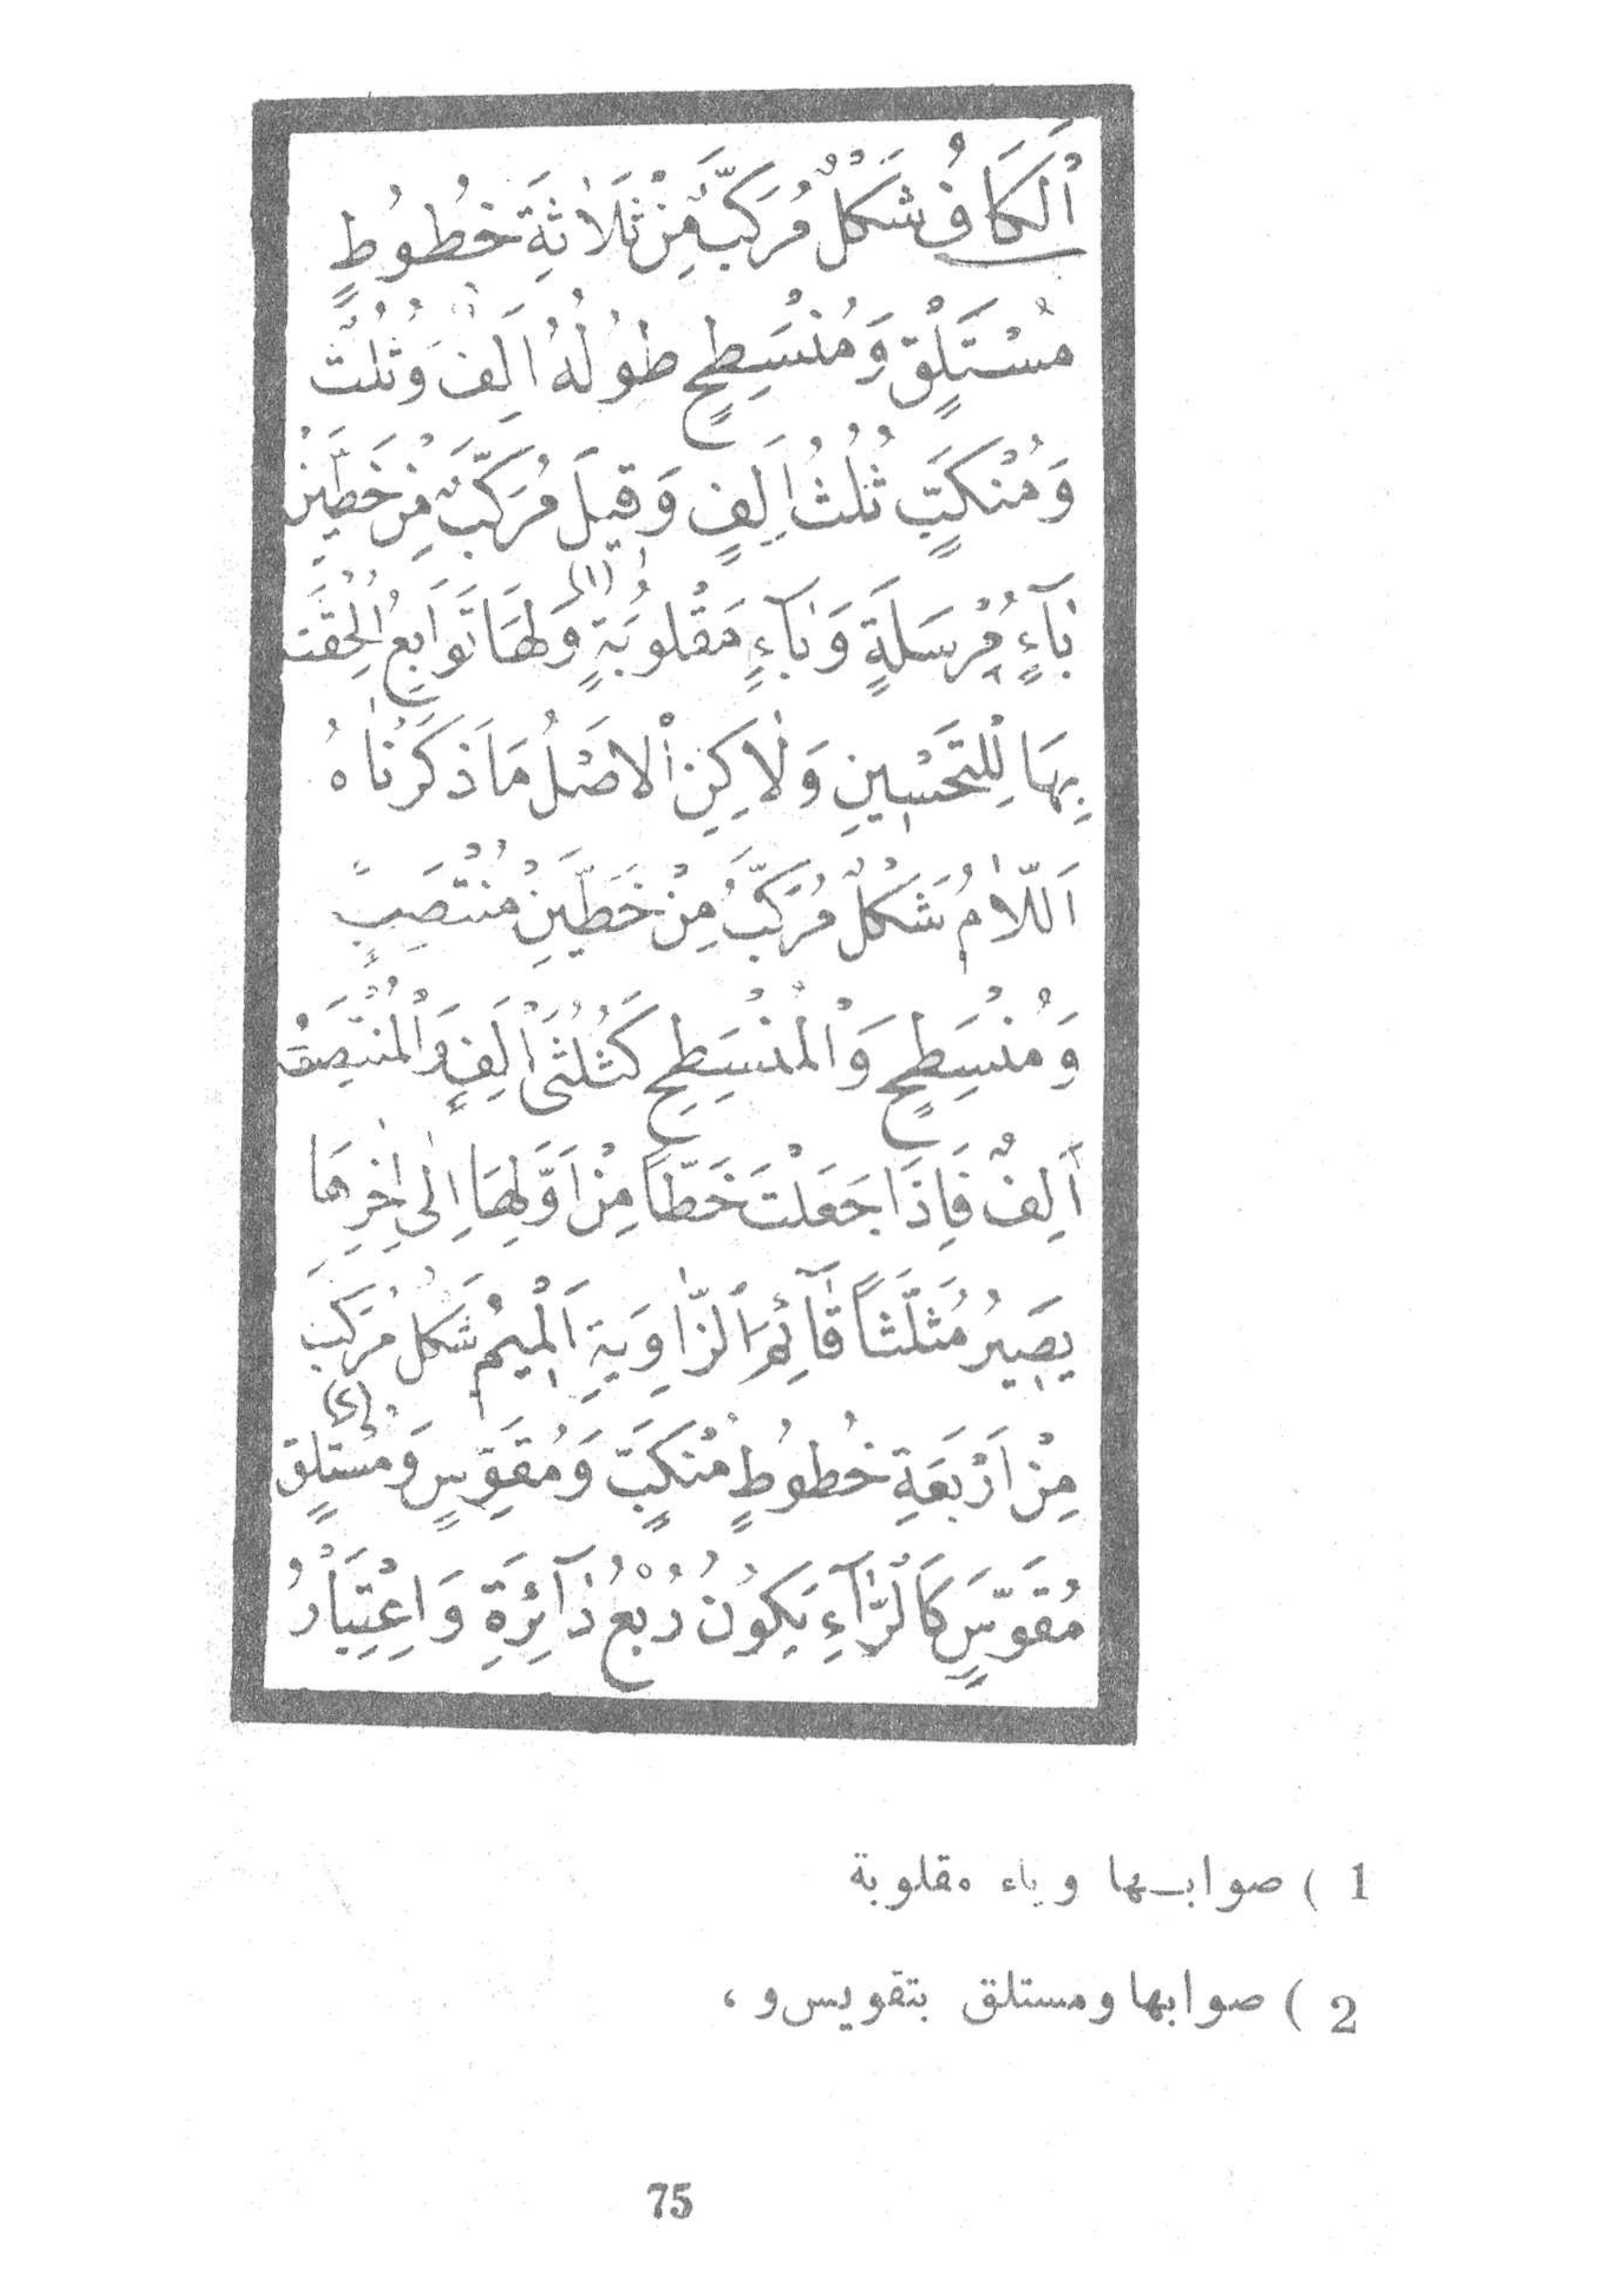 اَلْكَافُ شَكْلٌ مُرَكَّبٌ مِنْ ثَلَاثَةِ خُطُوطٍ
مُسْتَلْقٍ وَمُنْسَطِحٍ طُولُهُ اَلِفٌ وَثُلُثٌ
وَمُنْكَبٍّ ثُلُثُ اَلِفٍ وَقِيلَ مُرَكَّبٌ مِنْ خَطَّيْنِ
بَآءٍ مُرْسَلَةٍ وَبَآءٍ مَقْلُوبَةٍ (١) وَلَهَا تَوَابِعُ اُلْحِقَتْ
بِهَا لِلتَّحْسِينِ وَلَاكِنِ اْلاَصْلُ مَا ذَكَرْنَاهُ
اَللَّامُ شَكْلٌ مُرَكَّبٌ مِنْ خَطَّيْنِ مُنْتَصِبٍ
وَمُنْسَطِحٍ وَالْمُنْسَطِحِ كَثُلُثَىْ اَلِفٍ وَالْمُنْتَصِبُ
اَلِفٌ فَاِذَا جَعَلْتَ خَطًّا مِنْ اَوَّلِهَا اِلٰى اٰخِرِهَا
يَصِيرُ مُثَلَّثًا قَآئِمَ الزَّاوِيَةِ اَلْمِيمُ شَكْلٌ مُرَكَّبٌ
مِنْ اَرْبَعَةِ خُطُوطٍ مُنْكَبٍّ وَمُقَوَّسٍ وَمُسْتَلْقٍ (٢)
مُقَوَّسٍ كَالرَّآءِ يَكُونُ رُبْعُ دَآئِرَةِ وَاعْتِبَارُ
1 ) صوابها وباء مقلوبة
2 ) صوابها ومستلق بتقويس و ،
75